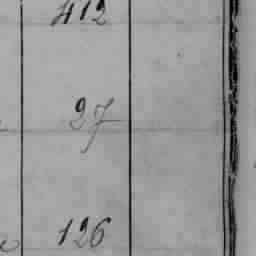 412
27
126